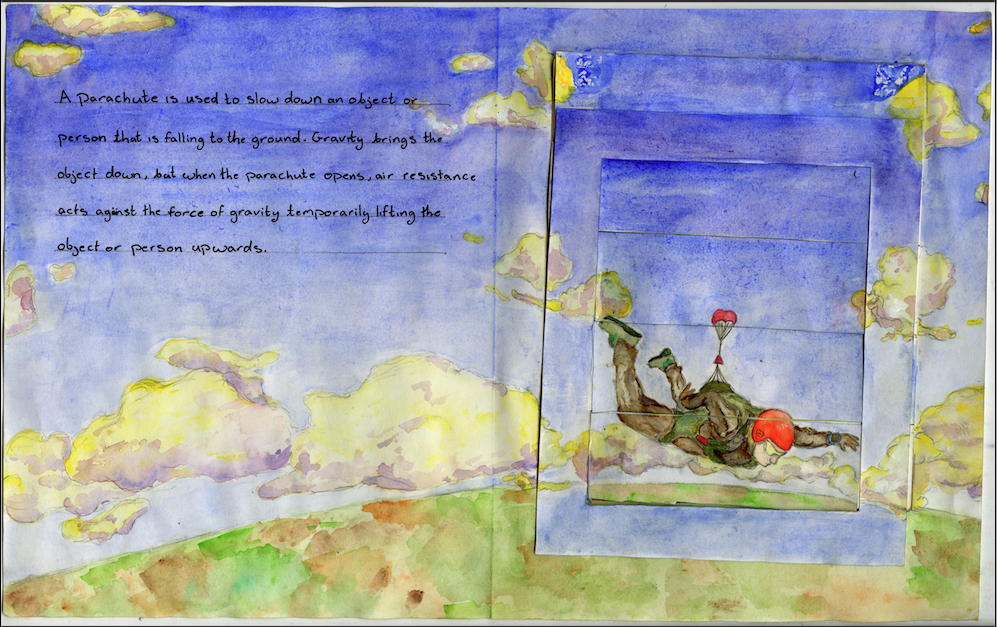 A parachute is used to slow down an object or
person that is falling to the ground. Gravity brings the
object down, but when the parachute opens, air resistance
acts against the force of gravity temporarily lifting the
object or person upwards.